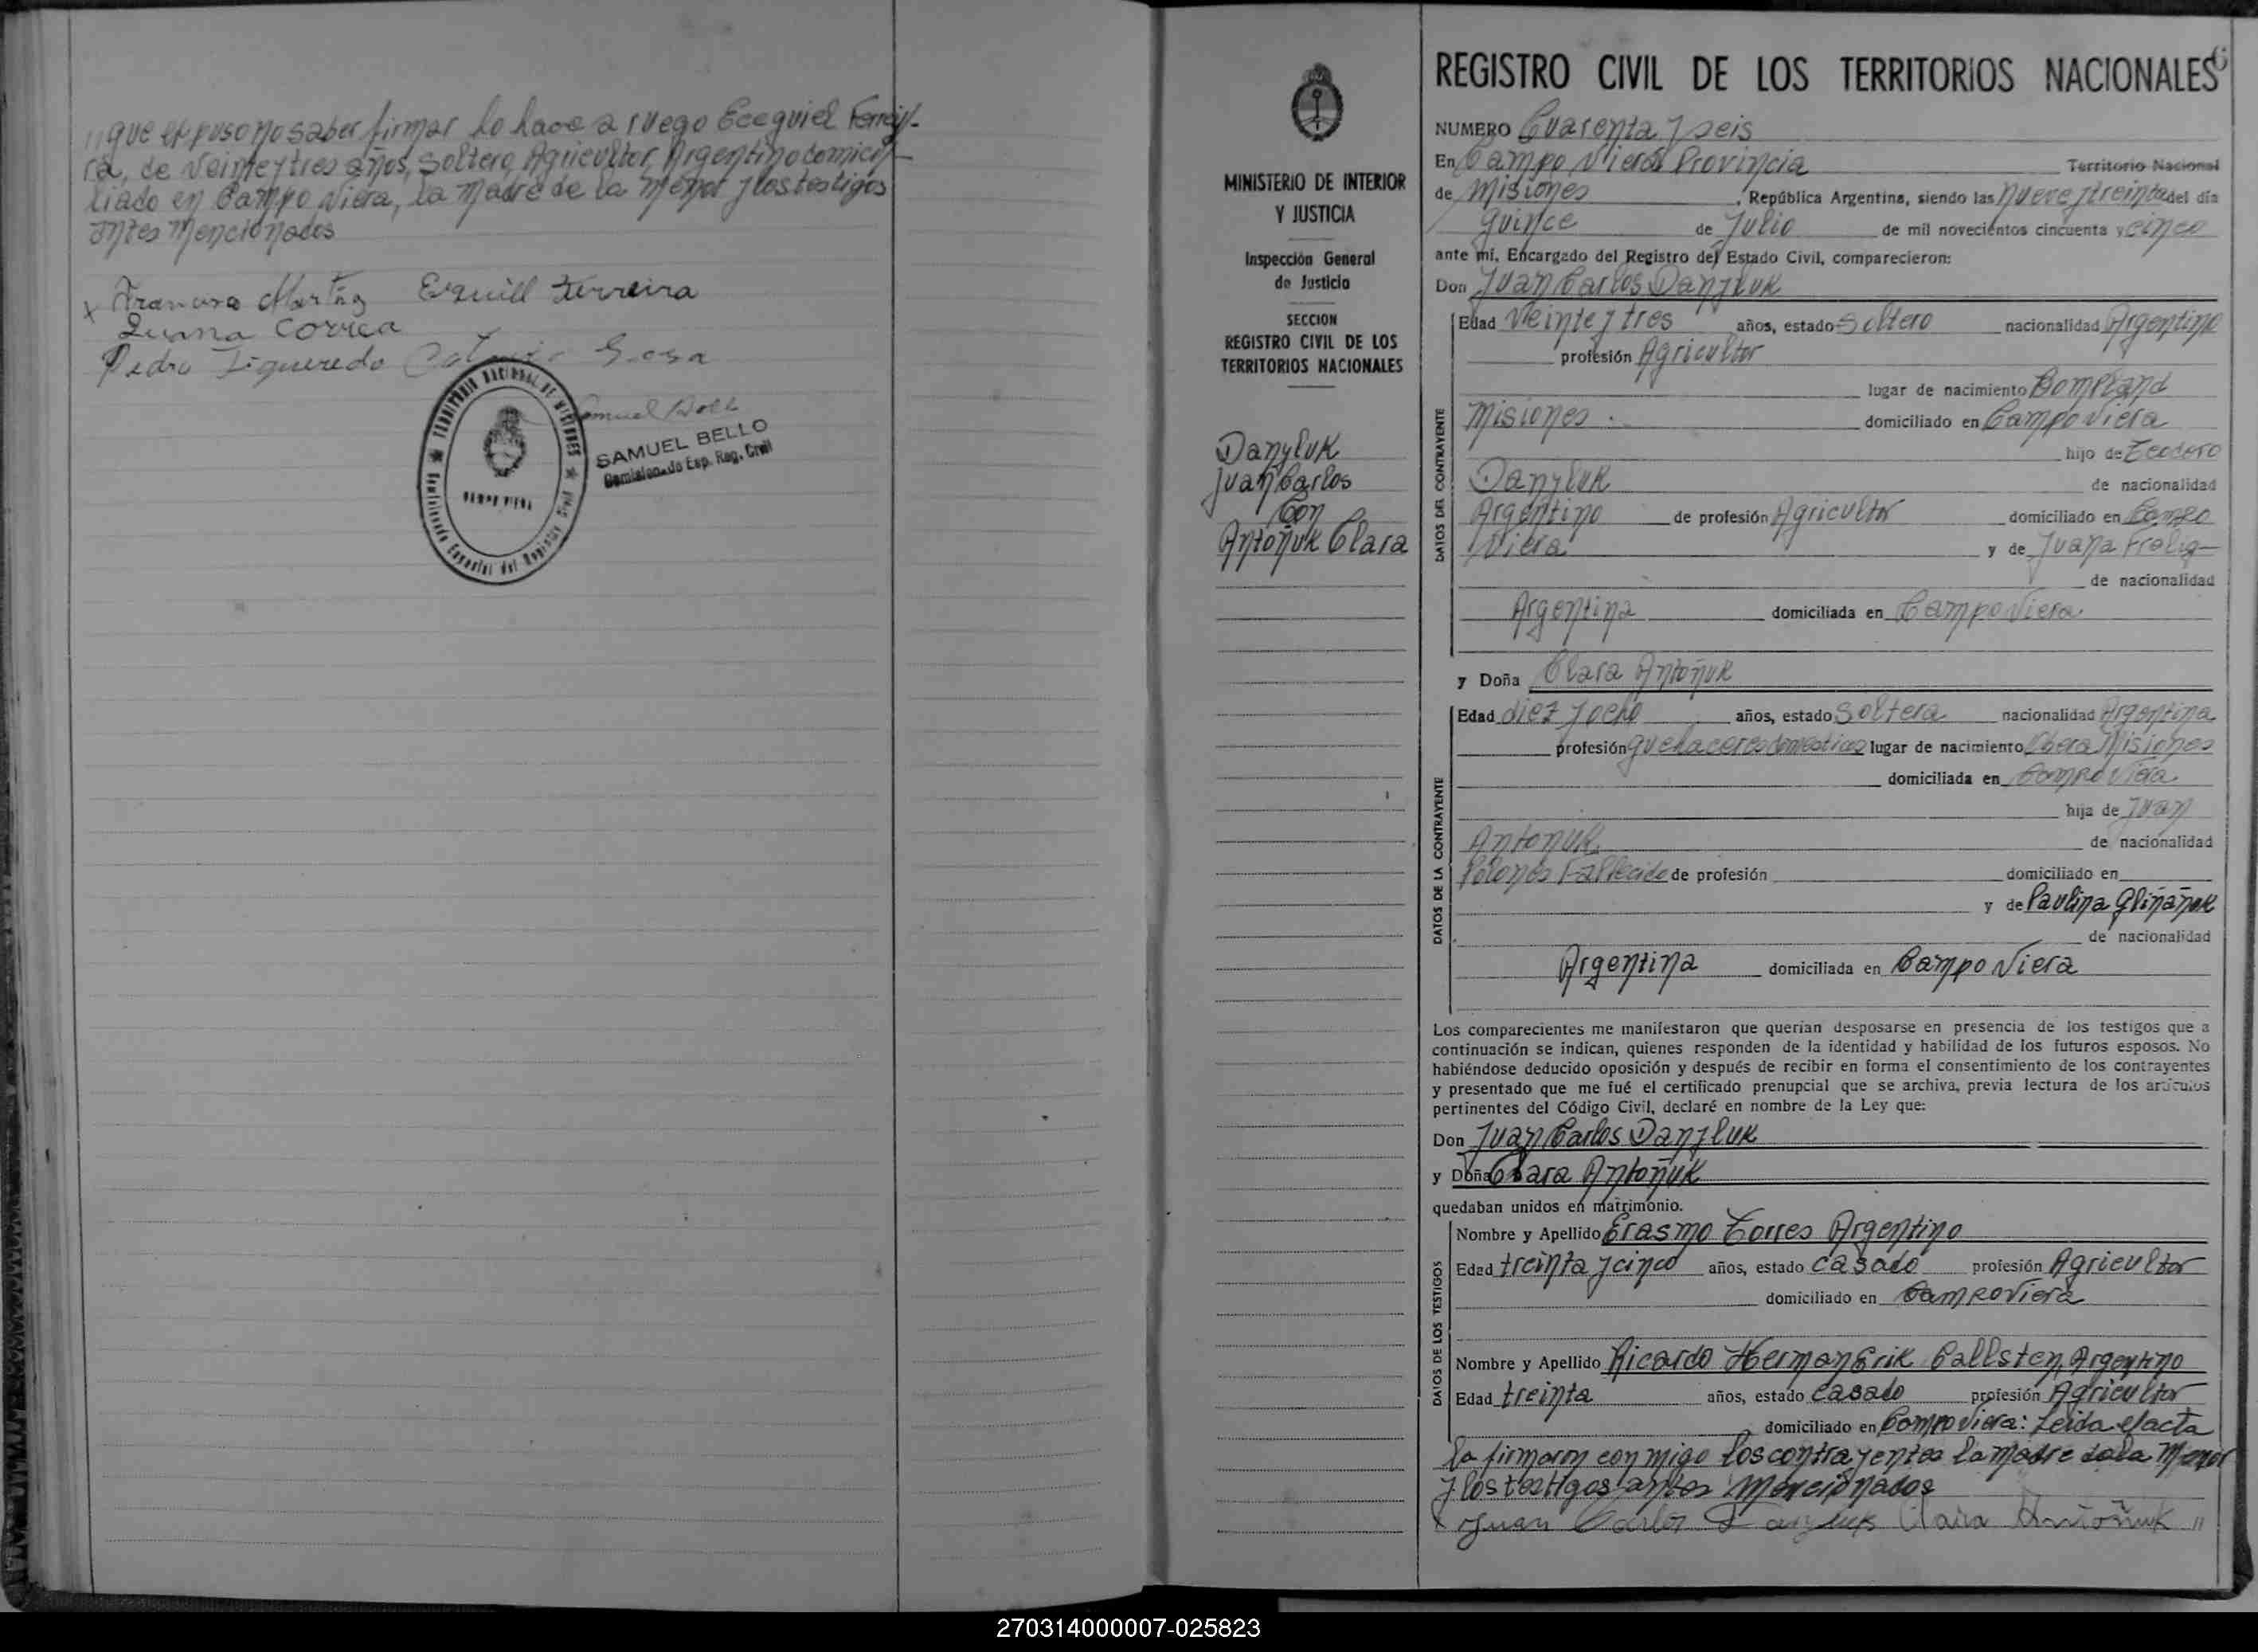 que expuso no saber firmar lo hace a ruego Ecequiel Ferrey-
ra, de veinte y tres años, soltero, Agricultor, Argentino domici-
liado en Campo Viera, la madre de la menor y los testigos
antes mencionados
Ezquiell Ferreira
Correa
Pedro Figueredo Sosa
TERRITORIO NACIONAL DE MISIONES
CAMPO VIERA
Comisionado Especial del Registro Civil
SAMUEL BELLO
Comisionado Esp. Reg. Civil
MINISTERIO DE INTERIOR
Y JUSTICIA
Inspección General
de Justicia
SECCION
REGISTRO CIVIL DE LOS
TERRITORIOS NACIONALES
Danyluk
Juan Carlos
Con
Antoñuk Clara
REGISTRO CIVIL DE LOS TERRITORIOS NACIONALES
NUMERO Cuarenta y seis
En Campo Viera Provincia Territorio Nacional
de Misiones, República Argentina, siendo las nueve y treinta del día
quince de Julio de mil novecientos cincuenta y cinco
ante mí, Encargado del Registro del Estado Civil, comparecieron:
Don Juan Carlos Danyluk
DATOS DEL CONTRAYENTE
Edad veinte y tres años, estado soltero nacionalidad Argentino
profesión Agricultor
lugar de nacimiento Bompland
Misiones. domiciliado en Campo Viera
hijo de Teodoro
Danyluk de nacionalidad
Argentino de profesión Agricultor domiciliado en Campo
Viera y de Juana
de nacionalidad
Argentina domiciliada en Campo Viera
y Doña Clara Antoñuk
DATOS DE LA CONTRAYENTE
Edad diez y ocho años, estado soltera nacionalidad Argentina
profesión quehaceres domesticos lugar de nacimiento Obera Misiones
domiciliada en Campo Viera
hija de Juan
Antoñuk de nacionalidad
Polones Fallecido de profesión domiciliado en
y de Paulina
de nacionalidad
Argentina domiciliada en Campo Viera
Los comparecientes me manifestaron que querían desposarse en presencia de los testigos que a
continuación se indican, quienes responden de la identidad y habilidad de los futuros esposos. No
habiéndose deducido oposición y después de recibir en forma el consentimiento de los contrayentes
y presentado que me fué el certificado prenupcial que se archiva, previa lectura de los artículos
pertinentes del Código Civil, declaré en nombre de la Ley que:
Don Juan Carlos Danyluk
y Doña Clara Antoñuk
quedaban unidos en matrimonio.
DATOS DE LOS TESTIGOS
Nombre y Apellido Erasmo Torres Argentino
Edad treinta y cinco años, estado casado profesión Agricultor
domiciliado en Campo Viera
Nombre y Apellido Ricardo Herman Erik Callsten, Argentino
Edad treinta años, estado casado profesión Agricultor
domiciliado en Campo Viera: Leida el acta
la firmaron conmigo los contrayentes la madre de la menor
y los testigos antes mencionados
Juan Carlos Danyluk Clara Antoñuk "
270314000007-025823